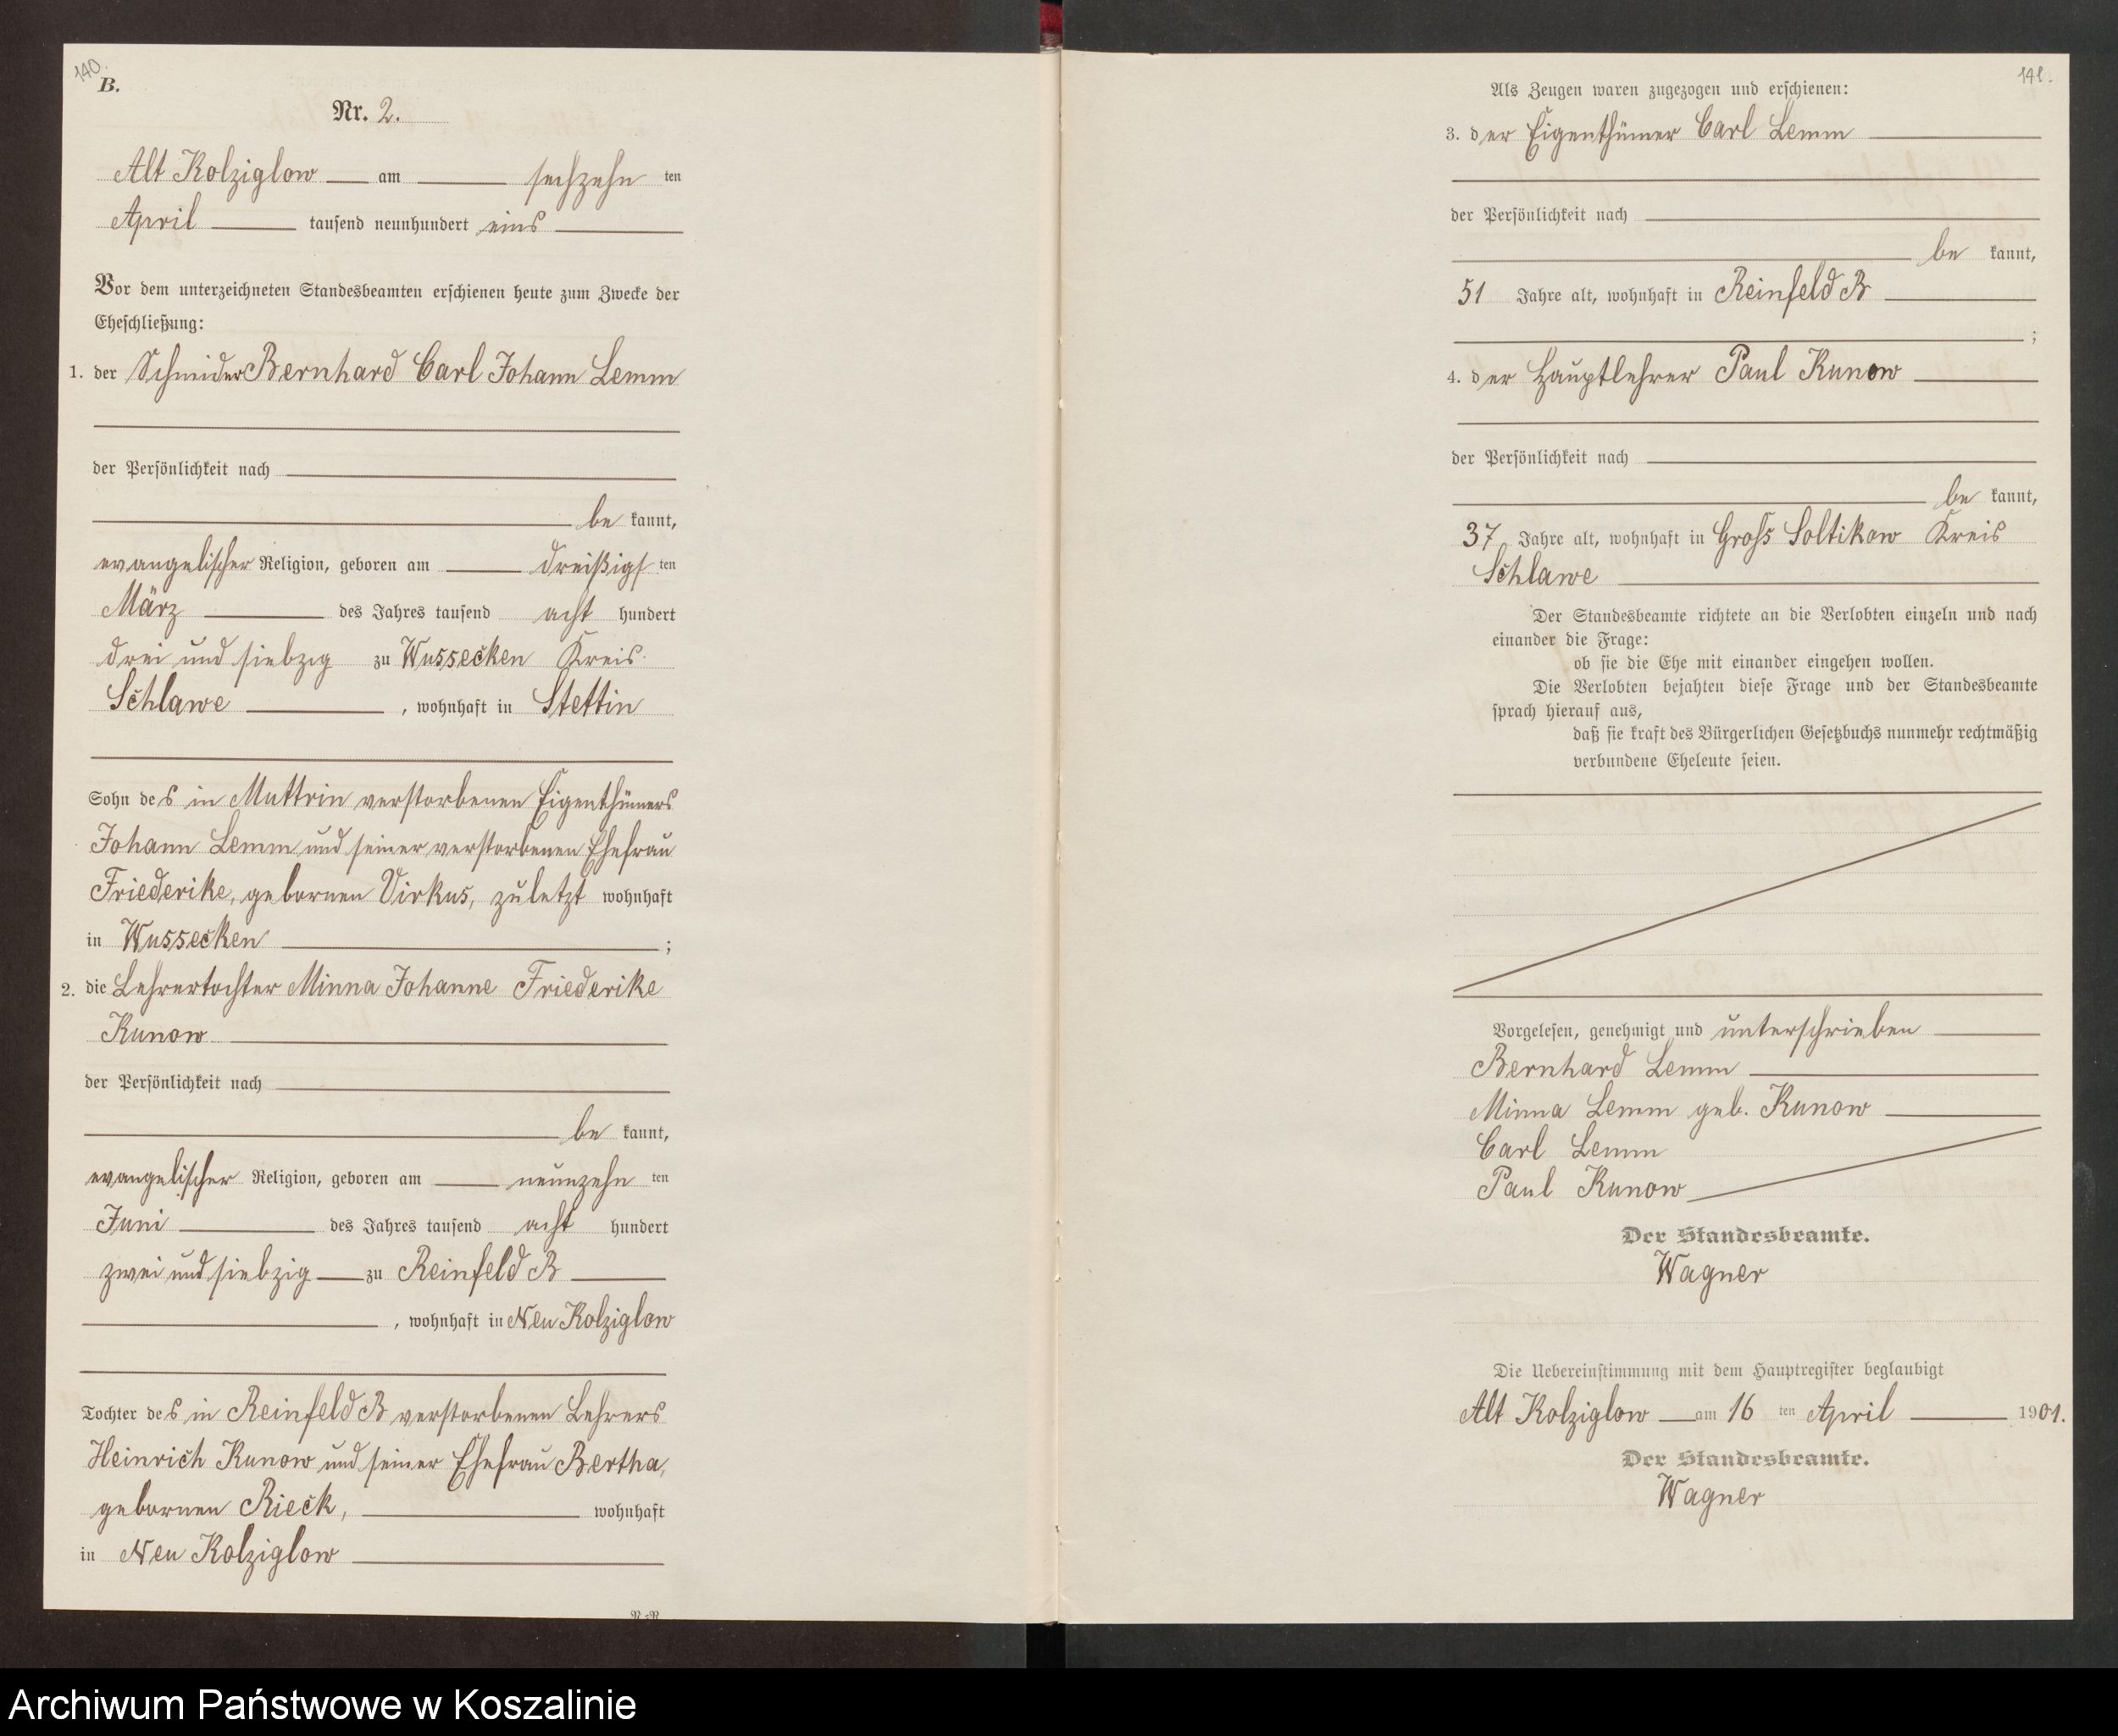 140.
B.
Nr. 2.
Alt Kolziglow am sechzehn ten
April tausend neunhundert eins
Vor dem unterzeichneten Standesbeamten erschienen heute zum Zwecke der
Eheschließung:
1. der Schneider Bernhard Carl Johann Lemm
der Persönlichkeit nach
be kannt,
evangelischer Religion, geboren am dreißigs ten
März des Jahres tausend acht hundert
drei und siebzig zu Wussecken Kreis
Schlawe , wohnhaft in Stettin
Sohn des in Muttrin verstorbenen Eigenthümers
Johann Lemm und seiner verstorbenen Ehefrau
Friederike, gebornen Virkus, zuletzt wohnhaft
in Wussecken ;
2. die Lehrertochter Minna Johanne Friederike
Kunow
der Persönlichkeit nach
be kannt,
evangelischer Religion, geboren am neunzehn ten
Juni des Jahres tausend acht hundert
zwei und siebzig zu Reinfeld B
, wohnhaft in Neu Kolziglow
Tochter des in Reinfeld B verstorbenen Lehrers
Heinrich Kunow und seiner Ehefrau Bertha,
gebornen Rieck, wohnhaft
in Neu Kolziglow
141.
Als Zeugen waren zugezogen und erschienen:
3. der Eigenthümer Carl Lemm
der Persönlichkeit nach
be kannt,
51 Jahre alt, wohnhaft in Reinfeld B
;
4. der Hauptlehrer Paul Kunow
der Persönlichkeit nach
be kannt,
37 Jahre alt, wohnhaft in Gross Soltikow Kreis
Schlawe
Der Standesbeamte richtete an die Verlobten einzeln und nach
einander die Frage:
ob sie die Ehe mit einander eingehen wollen.
Die Verlobten bejahten diese Frage und der Standesbeamte
sprach hierauf aus,
daß sie kraft des Bürgerlichen Gesetzbuchs nunmehr rechtmäßig
verbundene Eheleute seien.
Vorgelesen, genehmigt und unterschrieben
Bernhard Lemm
Minna Lemm geb. Kunow
Carl Lemm
Paul Kunow
Der Standesbeamte.
Wagner
Die Uebereinstimmung mit dem Hauptregister beglaubigt
Alt Kolziglow am 16 ten April 1901.
Der Standesbeamte.
Wagner
Archiwum Państwowe w Koszalinie